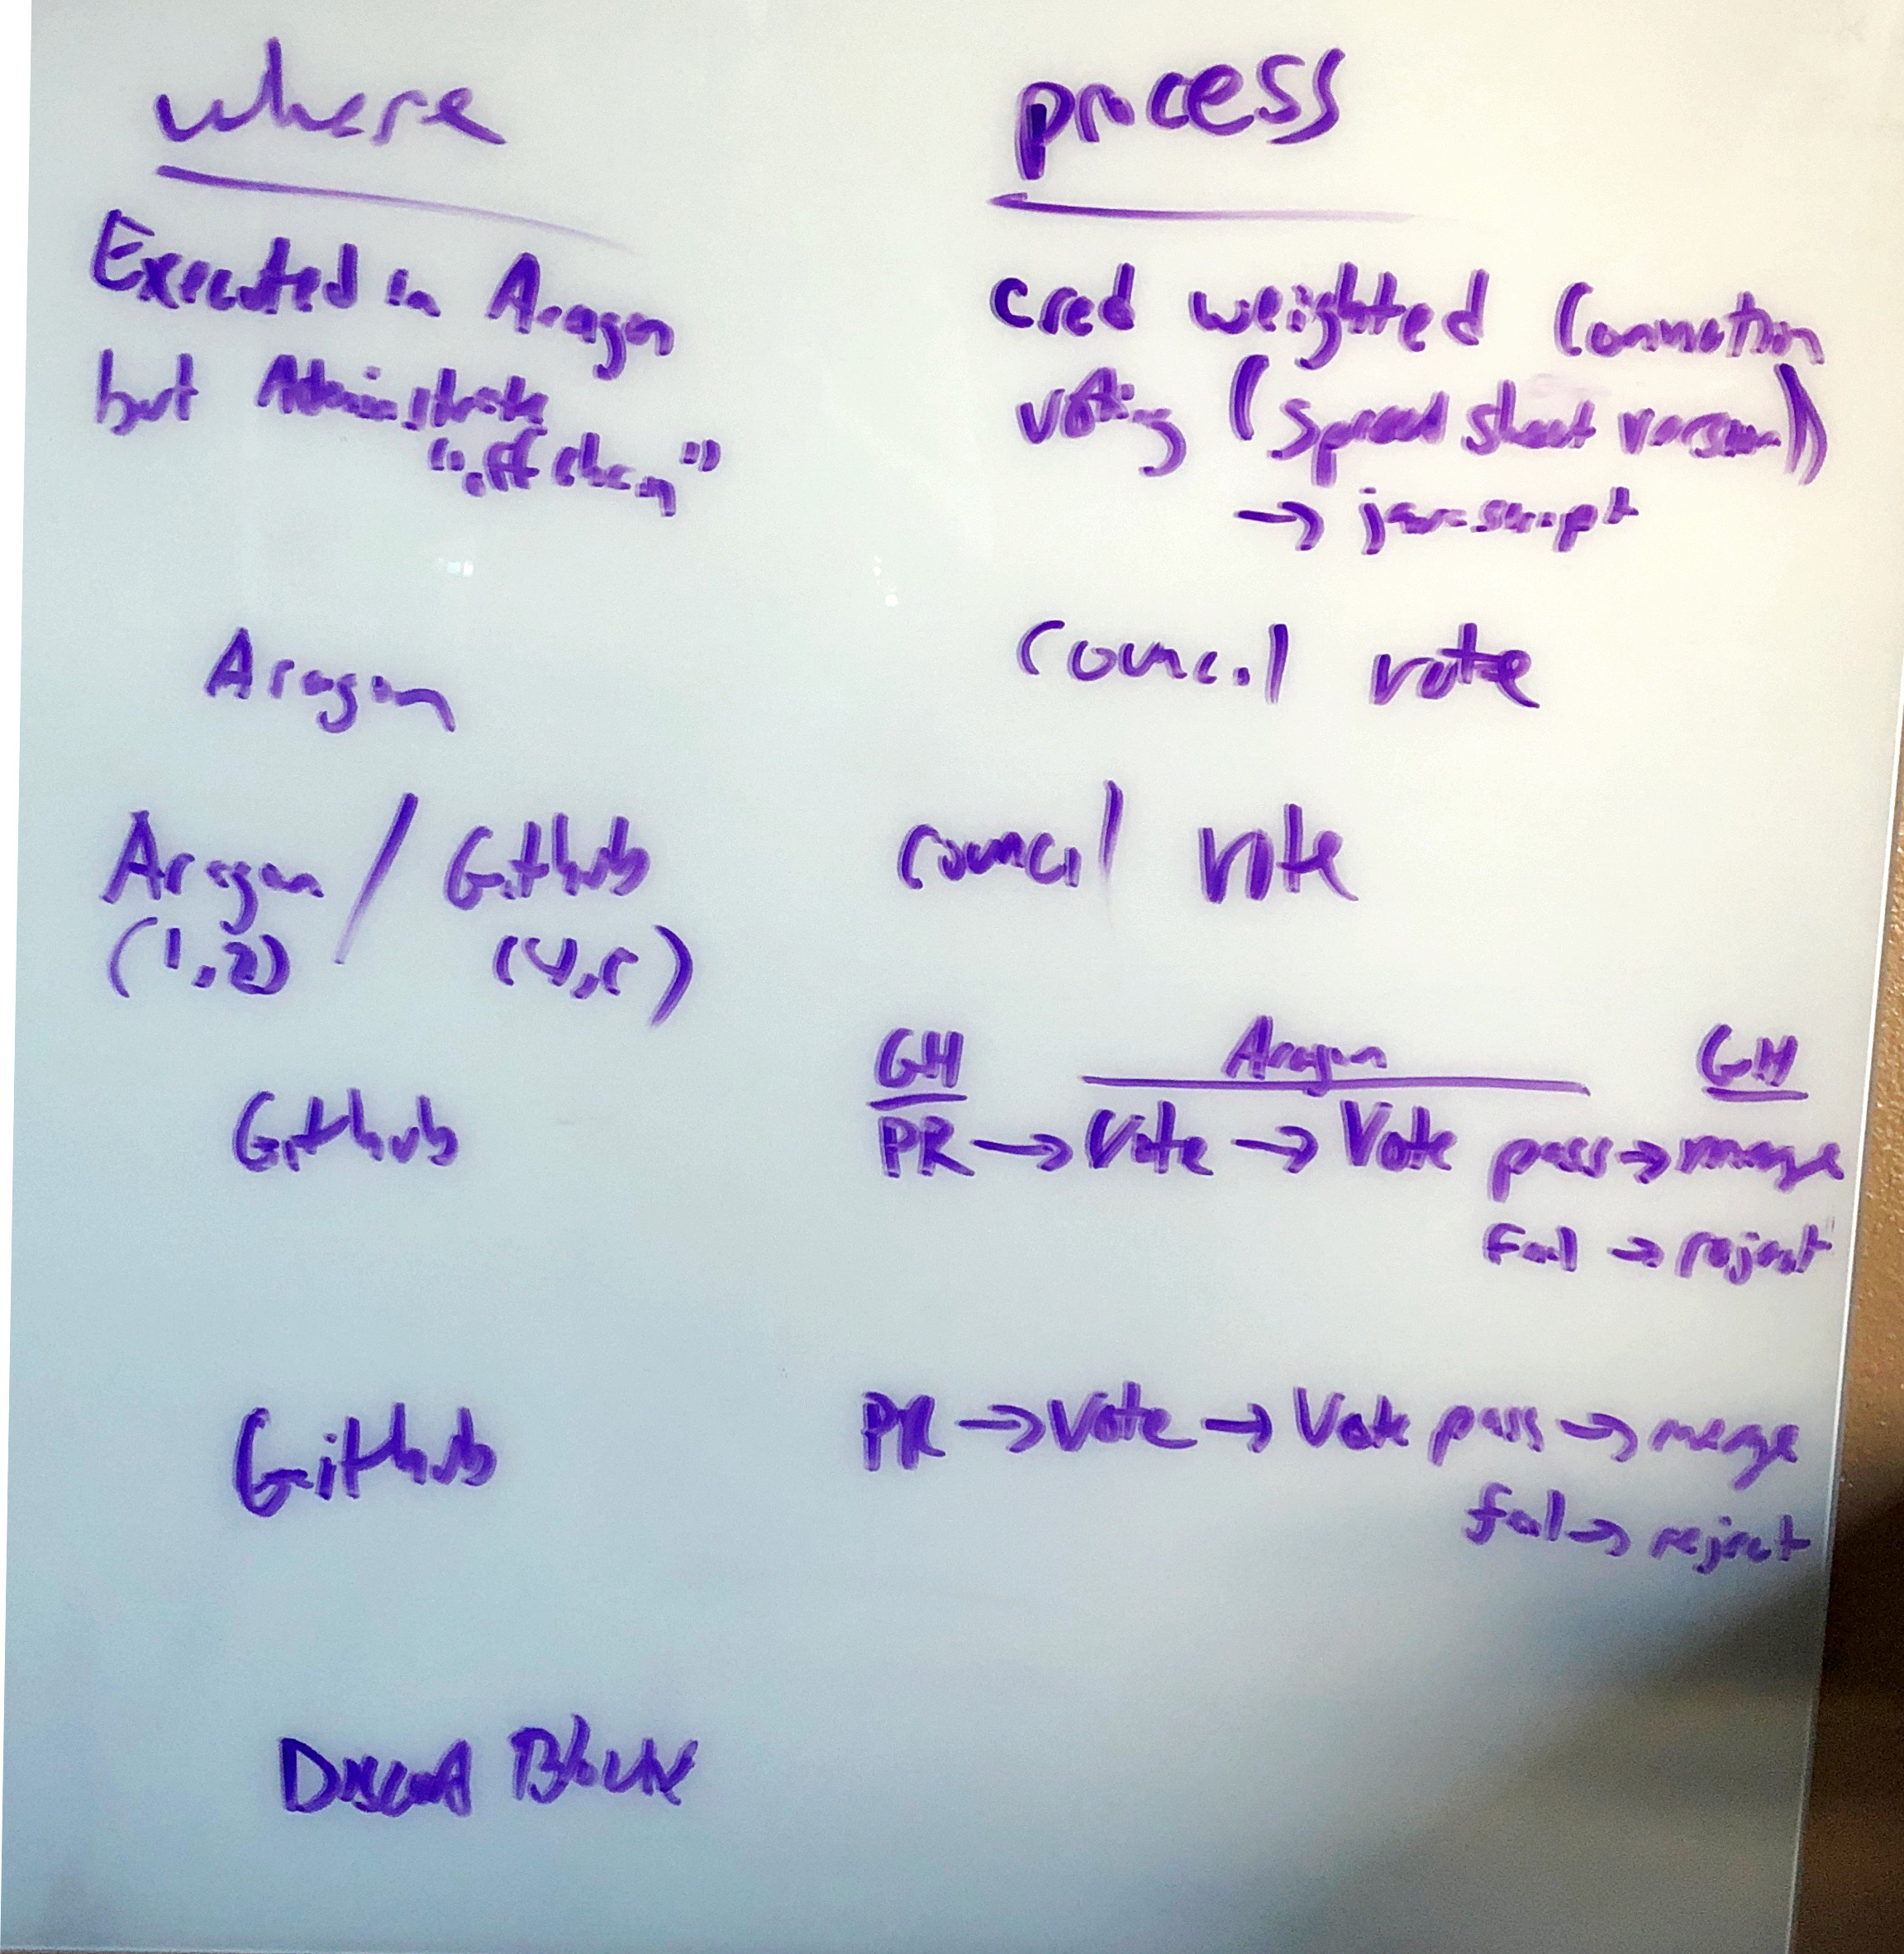 where
process
Executed in Aragon
but Administrate
"off chain"
cred weighted Conviction
voting (Spread sheet version)
→ javascript
Aragon
Council vote
Aragon / Github
(1,2) (4,5)
council vote
Github
GH Aragon GH
PR → Vote → Vote pass → merge
Fail → reject
Github
PR → Vote → Vote pass → merge
fail → reject
Discord